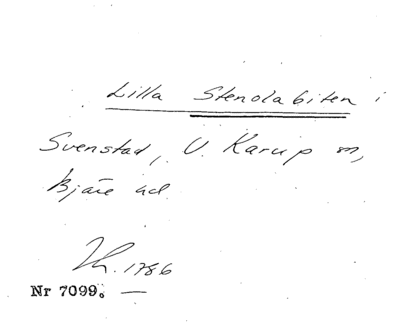 Lilla Stenolabiten i
Svenstad, V. Karup sn,
Bjäre hd.
Th. 1786
Nr 7099. —